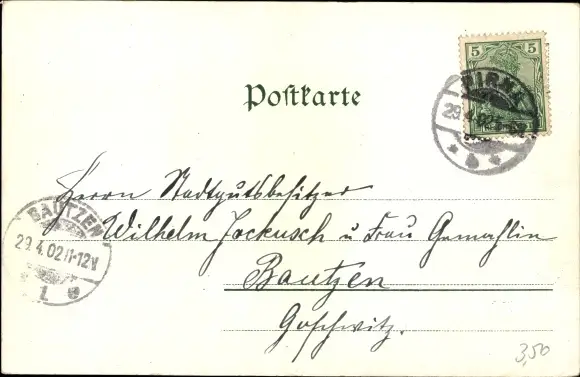 5 5
PIRNA
29.4.02
Postkarte
Herrn Stadtgutsbesitzer
Wilhelm Jockusch u Frau Gemahlin
Bautzen
Goschwitz.
BAUTZEN
29.4.02 11-12V
1 e
3,50